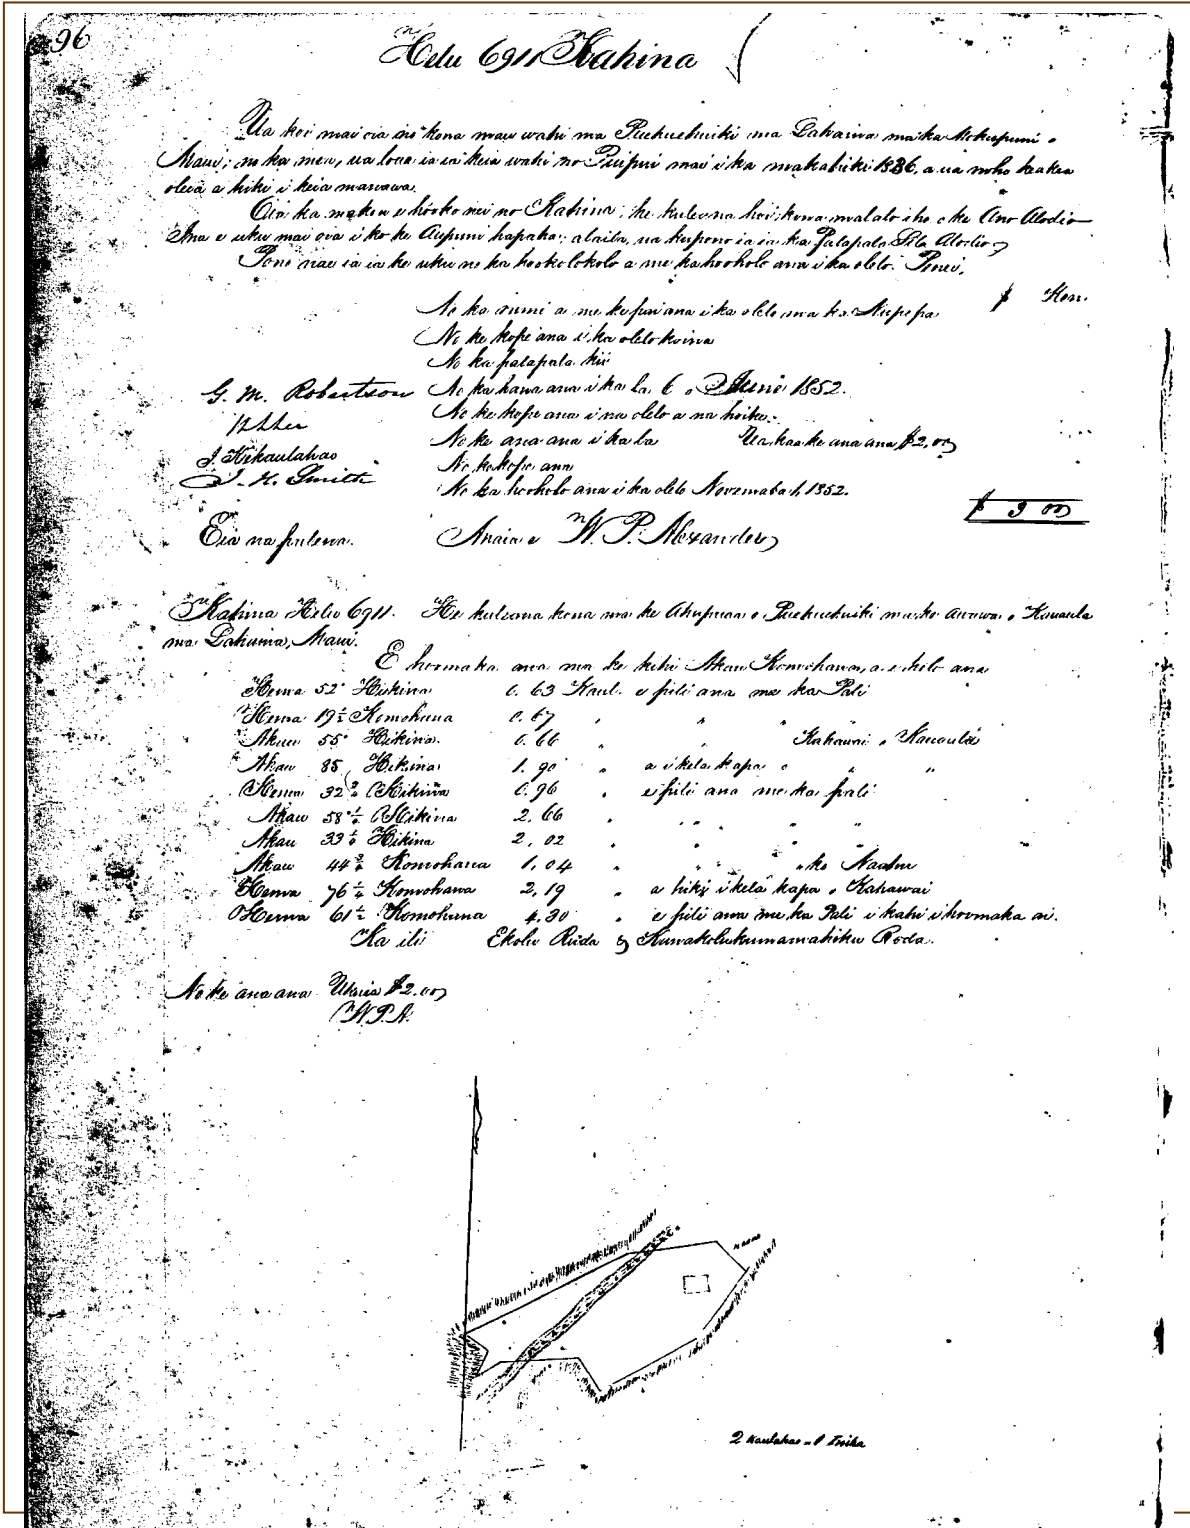 96
Helu 6911 Kahina
Ua koi mai oia no kona mau wahi ma Puehuehuiki ma Lahaina ma ka Mokupuni o
Maui; no ka mea, ua loaa ia ia keia wahi no Puipui mai i ka makahiki 1836, a ua noho keakea
oleia a hiki i keia manawa.
Oia ka makou e hooko nei no Kahina; he kuleana hoi kona malalo iho o ke Ano Alodio
Ina e uku mai oia i ko ke Aupuni hapaha; alaila, ua kupono ia ia ka Palapala Sila Alodio
Pono nae ia ia ke uku no ka hookolokolo a me ka hooholo ana i ka olelo. Penei,
$ Ken.
No ka rumi a me ke pai ana i ka olelo ma ka Nupepa
No ke kope ana i ka olelo koina
No ka palapala kii
G. M. Robertson No ka hana ana i ka la 6 o Iune 1852.
No ke kope ana i na olelo a na hoike.
No ke ana ana i ka la Ua kaa ke ana ana $2.00
J. Kekaulahao No ke kope ana
J. H. Smith No ka hooholo ana i ka olelo Novemaba 1, 1852.
$ 3 00
Eia na palena. Anaia e W. P. Alexander
Kahina Helu 6911. He kuleana kona ma ke Ahupuaa o Puehuehuiki ma ke awawa o Kauaula
ma Lahaina, Maui.
E hoomaka ana ma ke kihi Akau Komohana, a e holo ana
Hema 52° Hikina 0.63 Kaul. e pili ana me ka Pali
Hema 19½ Komohana 0.67 " " "
Akau 55° Hikina 0.66 " " Kahawai o Kauaula
Akau 85 Hikina 1.90 " a i kela kapa o " "
Hema 32 Hikina 0.96 " e pili ana me ka pali
Akau 58 Hikina 2.66 " " " " "
Akau 33 Hikina 2.02 " " " " "
Akau 44 Komohana 1.04 " " " " ko Naahu
Hema 76 Komohana 2.19 " a hiki i kela kapa o Kahawai
Hema 61½ Komohana 4.30 " e pili ana me ka Pali i kahi i hoomaka ai.
Ka ili Ekolu Ruda & Kanakolukumamahiku Roda.
No ke ana ana Ukuia $2.00
W.P.A.
2 Kaulahao = 1 Iniha